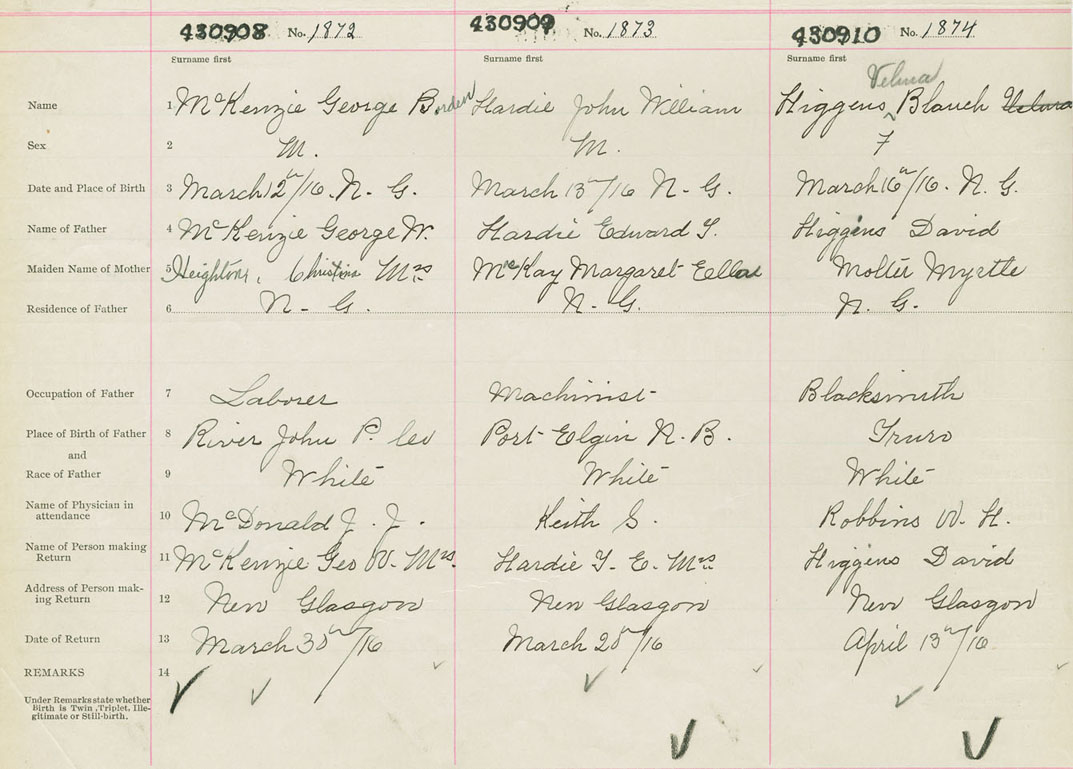 430908 No. 1872 430909 No. 1873 430910 No. 1874
Surname first Surname first Surname first
Velma
Name 1 McKenzie George Borden Hardie John William Higgens, Blanch Velma
Sex 2 M. M. F
Date and Place of Birth 3 March 12th/16. N. G. March 13th/16 N. G. March 16th/16. N. G.
Name of Father 4 McKenzie George W. Hardie Edward T. Higgens David
Maiden Name of Mother 5 Heighton, Christina Mrs McKay Margaret Ella Molter Myrtle
Residence of Father 6 N. G. N. G. N. G.
Occupation of Father 7 Laborer Machinist Blacksmith
Place of Birth of Father 8 River John P. Co Port Elgin N. B. Truro
and
Race of Father 9 White White White
Name of Physician in
attendance 10 McDonald J. J. Keith S. Robbins W. H.
Name of Person making
Return 11 McKenzie Geo W. Mrs. Hardie T. E. Mrs Higgins David
Address of Person mak-
ing Return 12 New Glasgow New Glasgow New Glasgow
Date of Return 13 March 30th/16 March 20th/16 April 13th/16
REMARKS 14
Under Remarks state whether
Birth is Twin, Triplet, Ille-
gitimate or Still-birth.